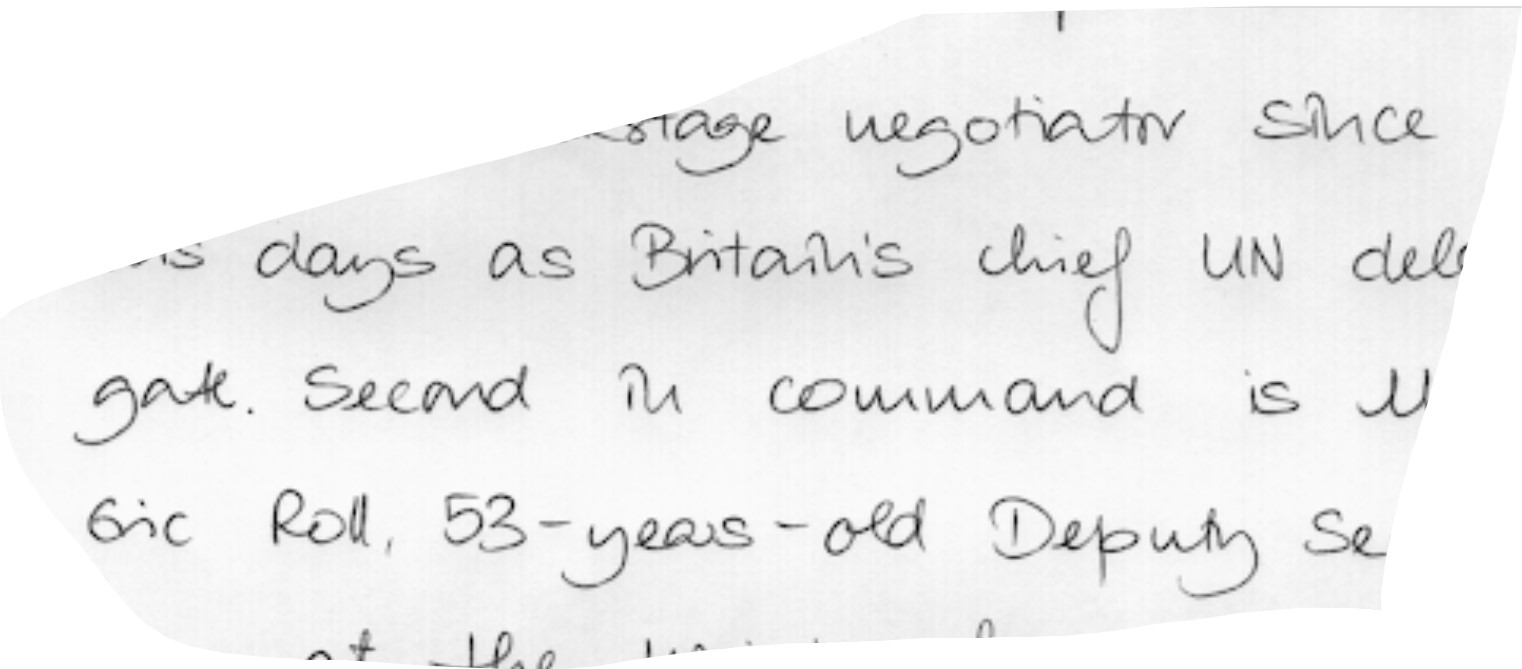 negotiator since
days as Britain's chief UN
gate. Second in command is
Eric Roll, 53-years-old Deputy
at the